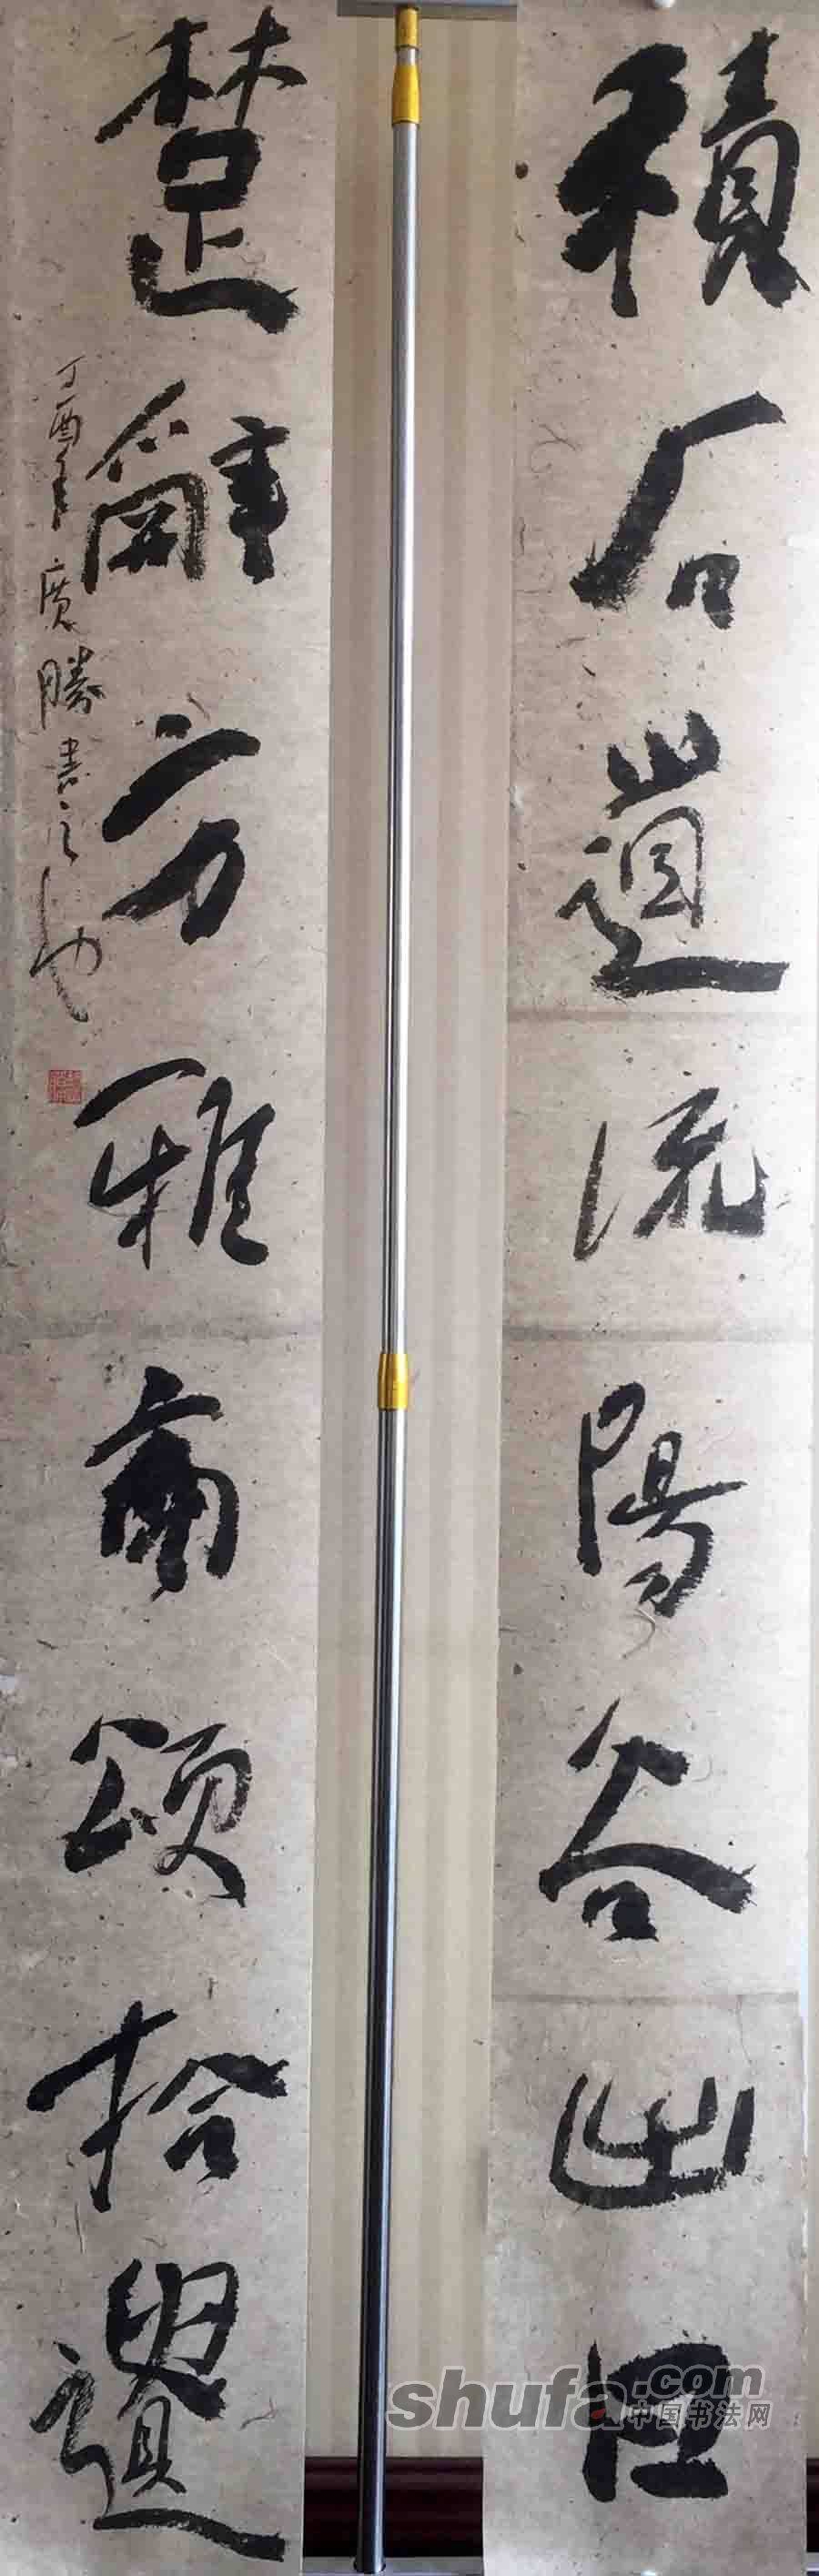 積石道流陽谷出日
楚辭方雅商頌拾遺
丁酉年廣勝書之也
shufa.com
中国书法网